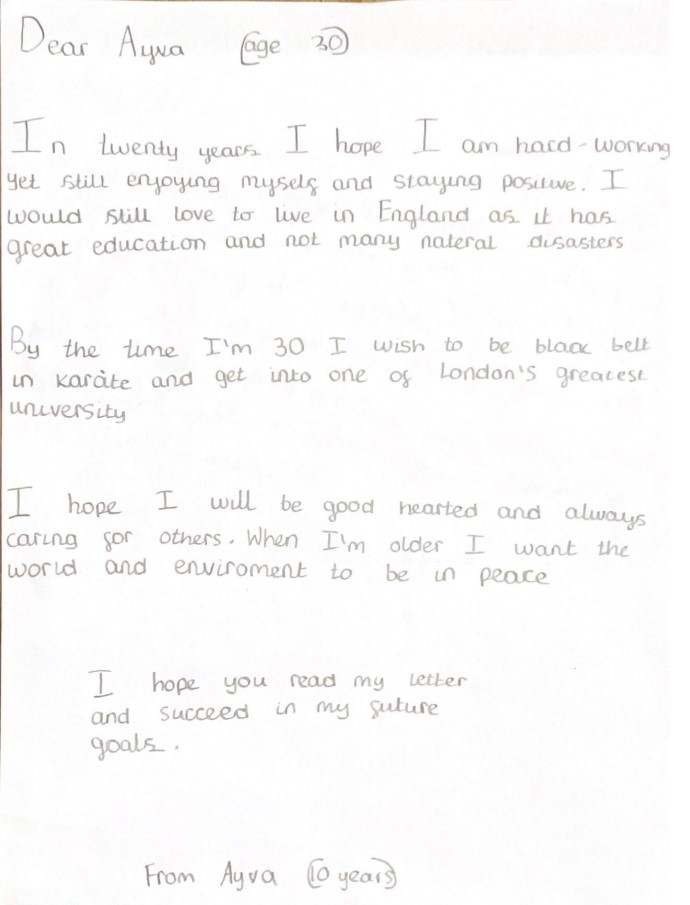 Dear Ayva (age 30)
In twenty years I hope I am hard-working
yet still enjoying myself and staying positive. I
would still love to live in England as it has
great education and not many nateral disasters
By the time I'm 30 I wish to be black belt
in karàte and get into one of London's greatest
university
I hope I will be good hearted and always
caring for others. When I'm older I want the
world and enviroment to be in peace
I hope you read my letter
and succeed in my future
goals.
From Ayva (10 years)